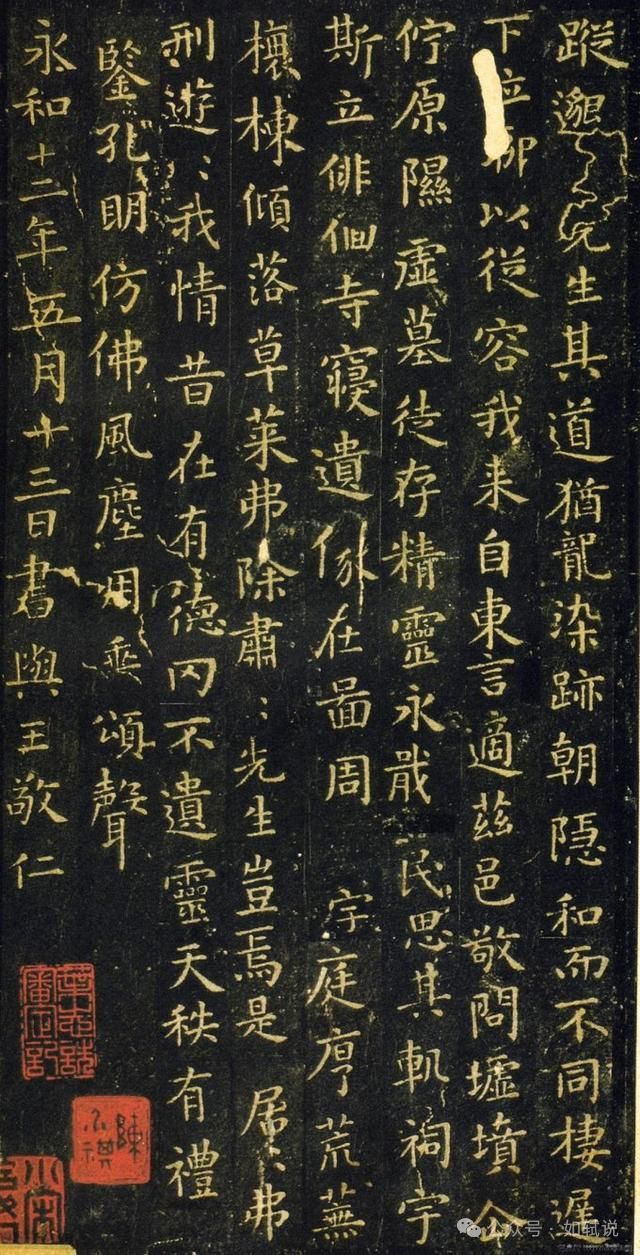 蹤邈邈先生其道猶龍染跡朝隱和而不同棲遲
下位聊以從容我来自東言適茲邑敬問墟墳企
佇原隰虛墓徒存精靈永戢民思其軌祠宇
斯立俳佪寺寢遺像在啚周宇庭序荒蕪
榱棟傾落草萊弗除肅〻先生豈焉是居〻弗
刑遊〻我情昔在有德罔不遺靈天秩有禮
鑒孔明仿佛風塵用垂頌聲
永和十二年五月十三日書與王敬仁
公众号·如轼说